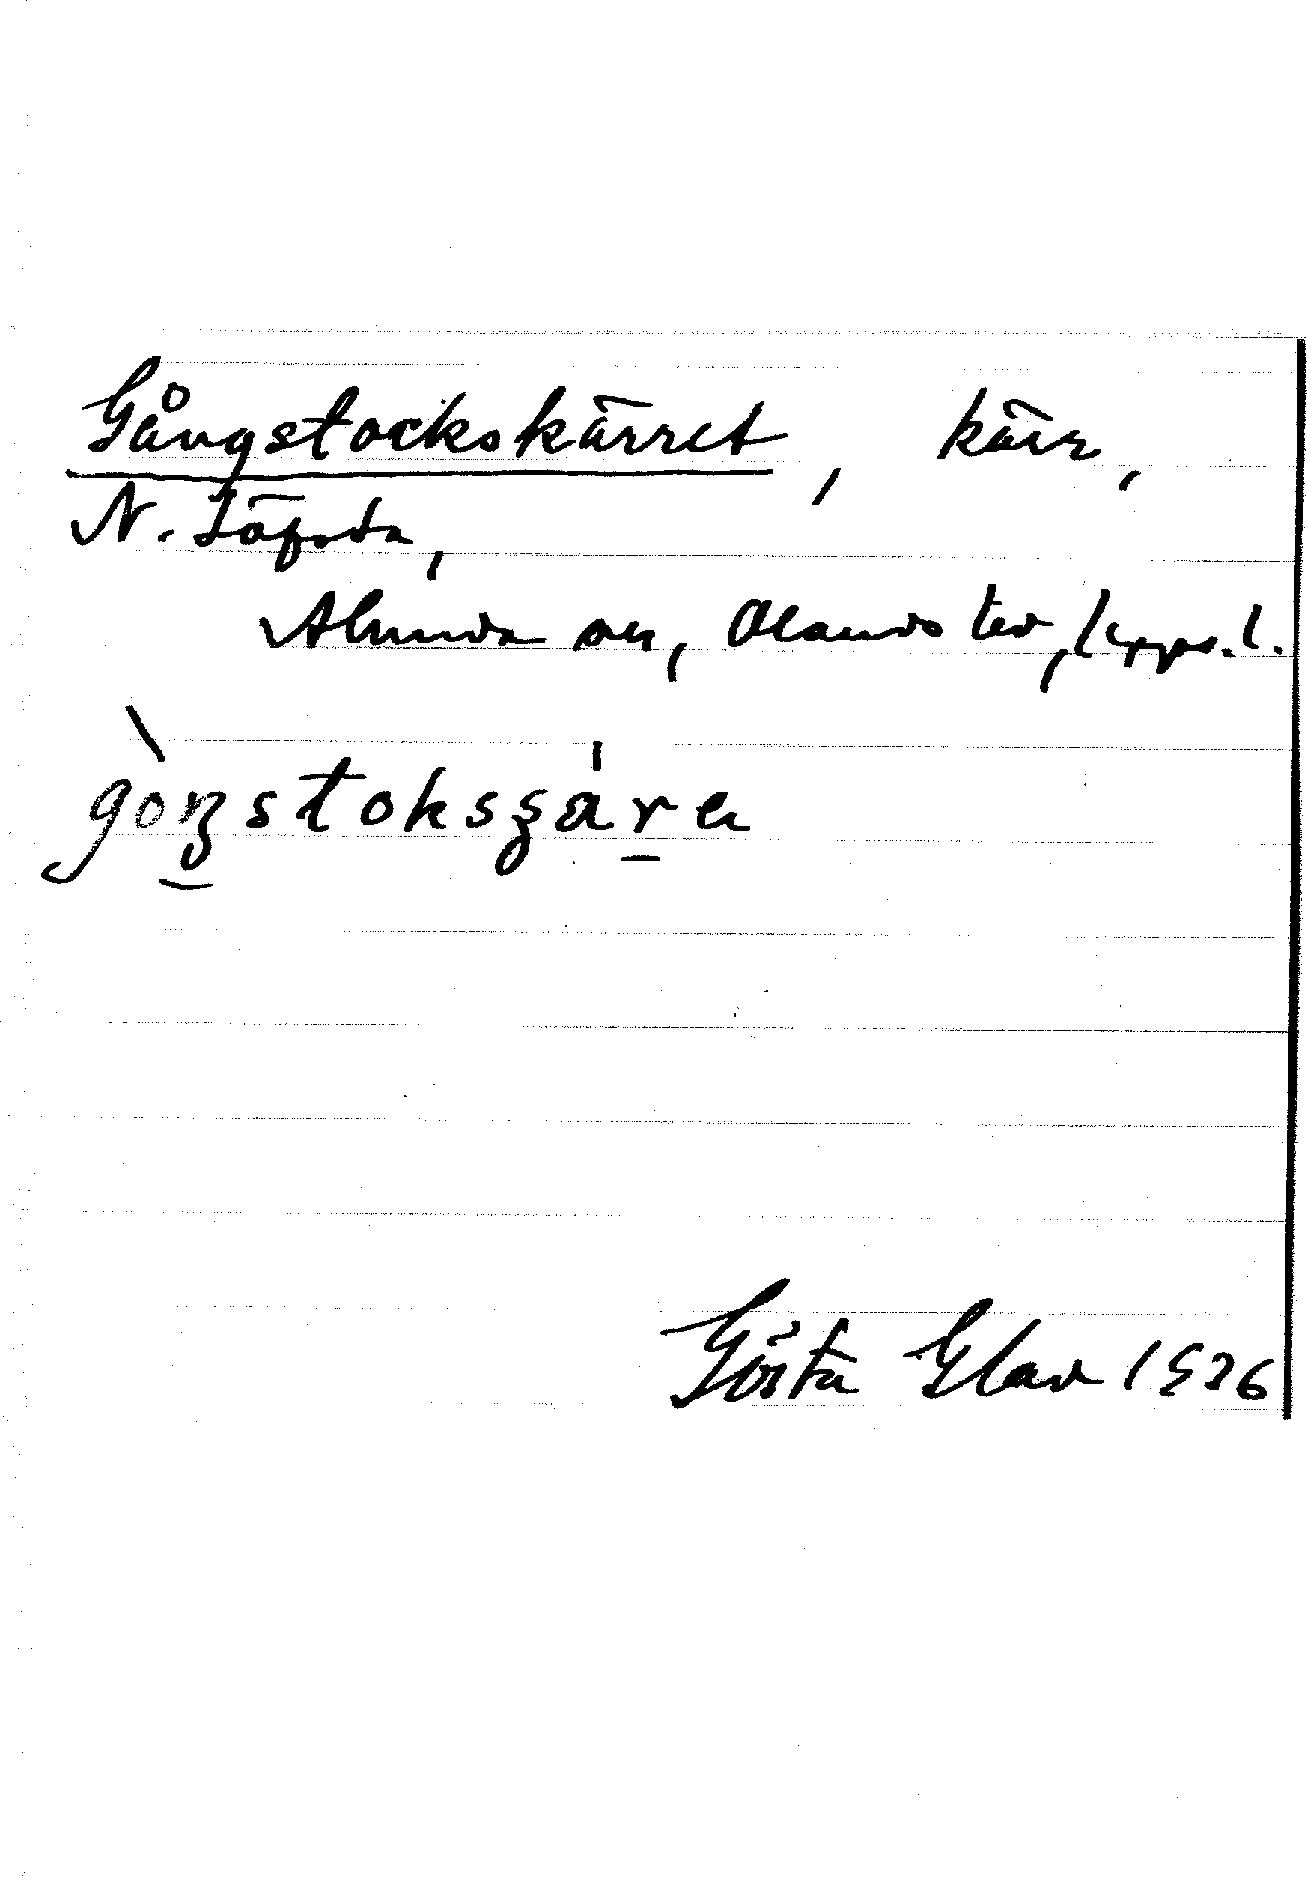 Gångstockskärret, kärr,
N. Läfsta,
Alunda sn, Olands hd, Upps. l.
gòŋstoksʂárɐ
Gösta Glav 1936